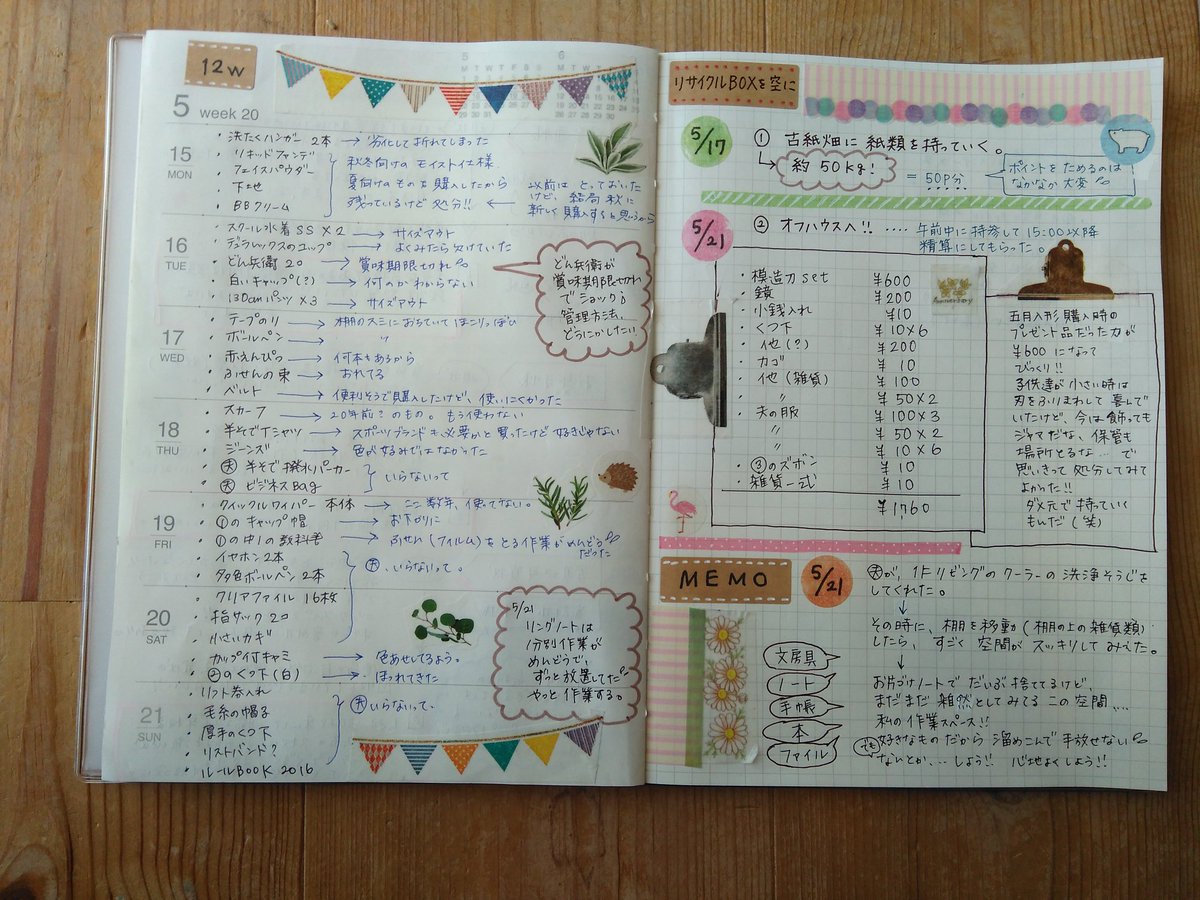 12w
5 week 20
15 MON
・洗たくハンガー 2本 → 劣化して折れてしまった
・リキッドファンデ
・フェイスパウダー
・下地
・BBクリーム
秋冬向けの モイスト仕様。
夏向けのものを購入したから
残っているけど 処分!!
以前は とっておいた
けど、結局 秋に
新しく購入すると思うから
16 TUE
・スクール水着 SS×2 → サイズアウト
・デラックスのコップ → よくみたら欠けていた
・どん兵衛 20 → 賞味期限切れ
・白いキャップ(?) → 何のかわからない
・130cmパンツ ×3 → サイズアウト
どん兵衛が
賞味期限切れ
でショック
管理方法、
どうにかしたい
17 WED
・テープのり → 棚のスミにおちていてほこりっぽい
・ボールペン → 〃
・赤えんぴつ → 何本もあるから
・ふせんの束 → おれてる
・ベルト → 便利そうで購入したけど、使いにくかった
18 THU
・スカーフ → 20年前?のもの。もう使わない
・半そでTシャツ → スポーツブランドも必要かと買ったけど好きじゃない
・ジーンズ → 色が好みではなかった
・夫 半そで撥水パーカー
・夫 ビジネスBag
いらないって
19 FRI
・クイックルワイパー 本体 → ここ数年、使ってない。
・①のキャップ帽 → お下がりに
・①の中1の教科書 → ふせん(フィルム)をとる作業がめんどう
だった
・イヤホン 2本
・多色ボールペン 2本
20 SAT
・クリアファイル 16枚
・指サック 20
・小さいカギ
夫、いらないって。
・カップ付キャミ → 色あせしてるよう。
・②のくつ下(白) → ほつれてきた
5/21
リングノートは
分別作業が
めんどうで、
ずっと放置してた
やっと作業する。
21 SUN
・リフト券入れ
・毛糸の帽子
・厚手のくつ下
・リストバンド?
・ルールBOOK 2016
夫いらないって、
リサイクルBOXを空に
5/17
① 古紙畑に紙類を持っていく。
約 50kg!
= 50P分
ポイントをためるのは
なかなか大変
5/21
② オフハウスへ!! ‥‥ 午前中に持参して 15:00以降
精算にしてもらった。
・模造刀 set ¥600
・鏡 ¥200
・小銭入れ ¥10
・くつ下 ¥10×6
・他(?) ¥200
・カゴ ¥10
・他(雑貨) ¥100
・〃 ¥50×2
・夫の服 ¥100×3
〃 ¥50×2
〃 ¥10×6
・③のズボン ¥10
・雑貨一式 ¥10
¥1,760
Anniversary
五月人形購入時の
プレゼント品だった刀が
¥600になって
びっくり!!
子供達が小さい時は
刃をふりまわして喜んで
いたけど、今は飾っても
ジャマだな、保管も
場所とるな…で
思いきって処分してみて
よかった!!
ダメ元で持っていく
もんだ(笑)
MEMO
5/21
夫が、1Fリビングのクーラーの洗浄そうじを
してくれた。
その時に、棚を移動(棚の上の雑貨類)
したら、すごく空間がスッキリしてみえた。
お片づけノートでだいぶ捨ててるけど、
まだまだ雑然としてみてる この空間…
私の作業スペース!!
でも 好きなものだから溜めこんで手放せない
なんとか… しよう!! 心地よくしよう!!
文房具
ノート
手帳
本
ファイル